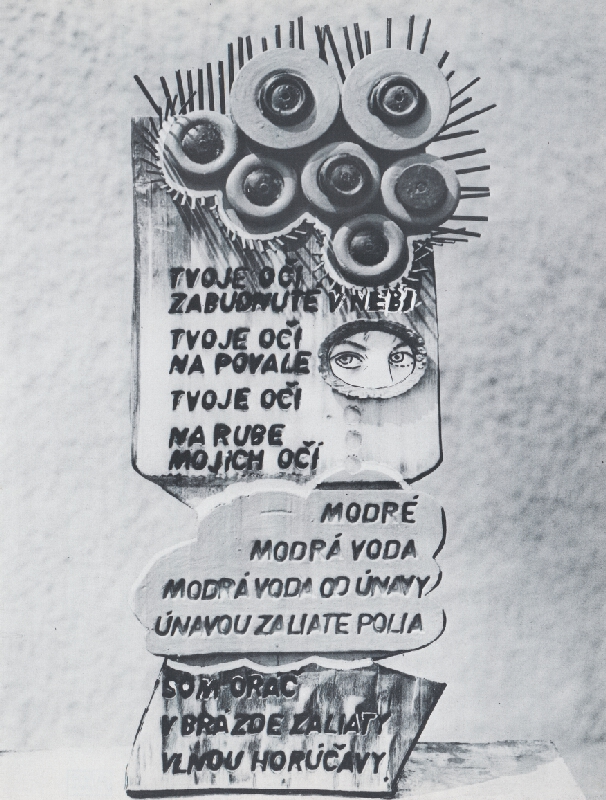 TVOJE OČÍ
ZABUDNUTÉ V NEBI
TVOJE OČÍ
NA POVALE
TVOJE OČÍ
NA RUBE
MOJICH OČÍ
MODRÉ
MODRÁ VODA
MODRÁ VODA OD ÚNAVY
ÚNAVOU ZALIATE POLIA
SOM ORÁČ
V BRÁZDE ZALIATY
VLNOU HORÚČAVY